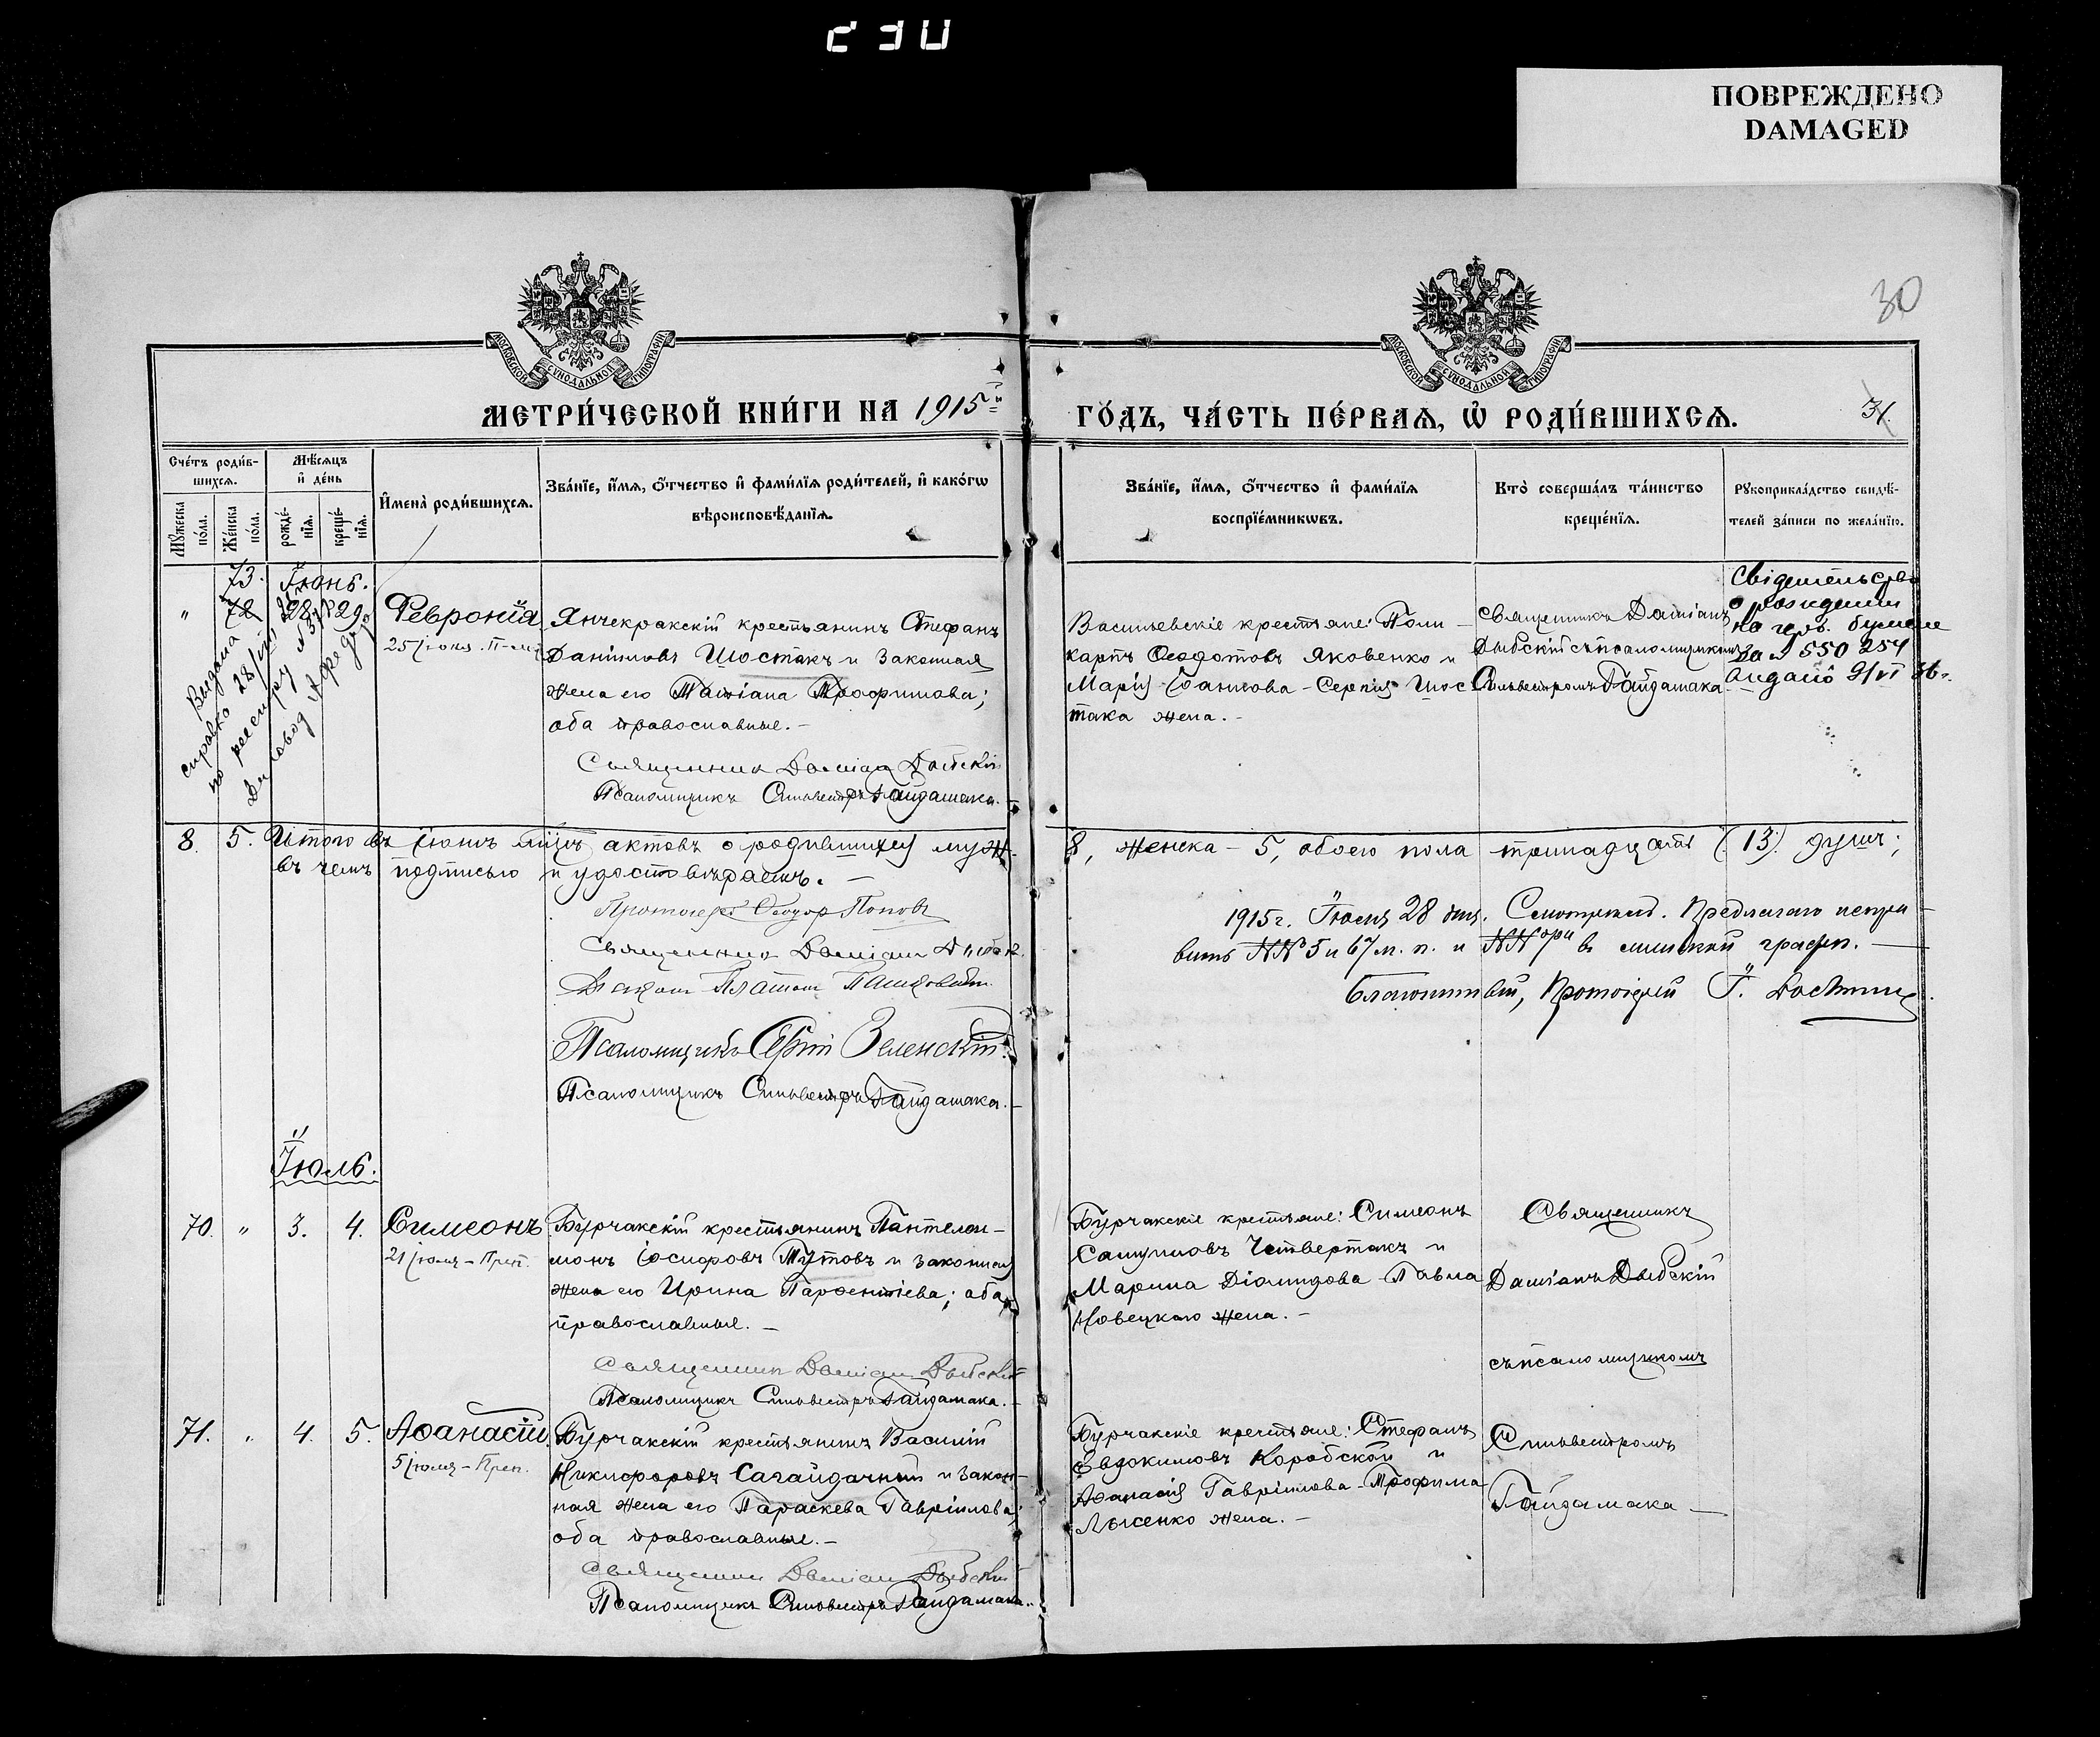 230
ПОВРЕЖДЕНО
DAMAGED
30
МОСКОВСКОЙ СѴНОДАЛЬНОЙ ТИПОГРАФІИ
МОСКОВСКОЙ СѴНОДАЛЬНОЙ ТИПОГРАФІИ
МЕТРИ́ЧЕСКОЙ КНИ́ГИ НА 1915й
ГО́ДЪ, ЧА́СТЬ ПЕ́РВАѦ, Ѡ РОДИ́ВШИХСѦ.
31.
Сче́тъ роди́в-
шихсѧ.
Мꙋ́жеска по́ла.
Же́нска по́ла.
Мѣ́сѧцъ
и҆ де́нь
рожде́-
нїѧ.
креще́-
нїѧ.
И҆мена̀ роди́вшихсѧ.
Зва́нїе, и҆́мѧ, ѻ҆́тчество и҆ фами́лїѧ роди́телей, и҆ како́гѡ
вѣроисповѣ́данїѧ.
Зва́нїе, и҆́мѧ, ѻ҆́тчество и҆ фами́лїѧ
воспрїе́мникѡвъ.
Кто̀ соверша́лъ та́инство
креще́нїѧ.
Рꙋкоприкла́дство свидѣ́-
телей за́писи по жела́нїю.
73.
Іюнь.
" 72 28 29
Февронія
25 іюня. П-м.
Выдана
справка 28/
по реестру №
Янчекракскій крестьянинъ Стефанъ
Даніиловъ Шостакъ и законная
жена его Татіана Трофимова;
оба православные. -
Священникъ Даміанъ Дыбскій
Псаломщикъ Сильвестръ Гайдамака. -
Васильевскіе крестьяне: Поли -
карпъ Ѳеодотовъ Яковенко и
Марія Іоаннова - Сергія Шос-
така жена. -
Священникъ Даміанъ
Дыбскій съ псаломщикомъ
Сильвестромъ Гайдамака
Свідетельство
о рождении
на герб. бумаге
за № 550 254
видано 9/VI 36 г.
8. 5. Итого въ іюнѣ м-цѣ актовъ о родившихся муж.
8, женска - 5, обоего пола тринадцать (13) душъ;
въ чемъ подписью и удостовѣряемъ. -
Протоіерей Ѳеодоръ Поповъ
Священникъ Даміанъ Дыбскій
Псаломщикъ Сергій Зеленскій.
Псаломщикъ Сильвестръ Гайдамака. -
1915 г. Іюля 28 дня. Смотрѣлъ. Предлагаю испра -
вить №№ 5 и 67 м. п. и
Благочинный, Протоіерей
Іюль.
70. " 3. 4. Симеонъ
21 іюля - Преп.
Бурчакскій крестьянинъ Пантелеи-
монъ Іосифовъ Тутовъ и законная
жена его Ирина Парѳентіева; оба
православные. -
Священникъ Даміанъ Дыбскій
Псаломщикъ Сильвестръ Гайдамака. -
Бурчакскіе крестьяне: Симеонъ
Самуиловъ Четвертакъ и
Марина Діомидова - Павла
Новецкаго жена. -
Священникъ
Даміанъ Дыбскій
съ псаломщикомъ
71. " 4. 5. Аѳанасій
5 іюля - Преп.
Бурчакскій крестьянинъ Василій
Никифоровъ Сагайдачный и закон-
ная жена его Параскева Гавріилова;
оба православные. -
Священникъ Даміанъ Дыбскій
Псаломщикъ Сильвестръ Гайдамака.
Бурчакскіе крестьяне: Стефанъ
Евдокимовъ Коробской и
Аѳанасія Гавріилова - Трофима
Лысенко жена. -
Сильвестромъ
Гайдамака -